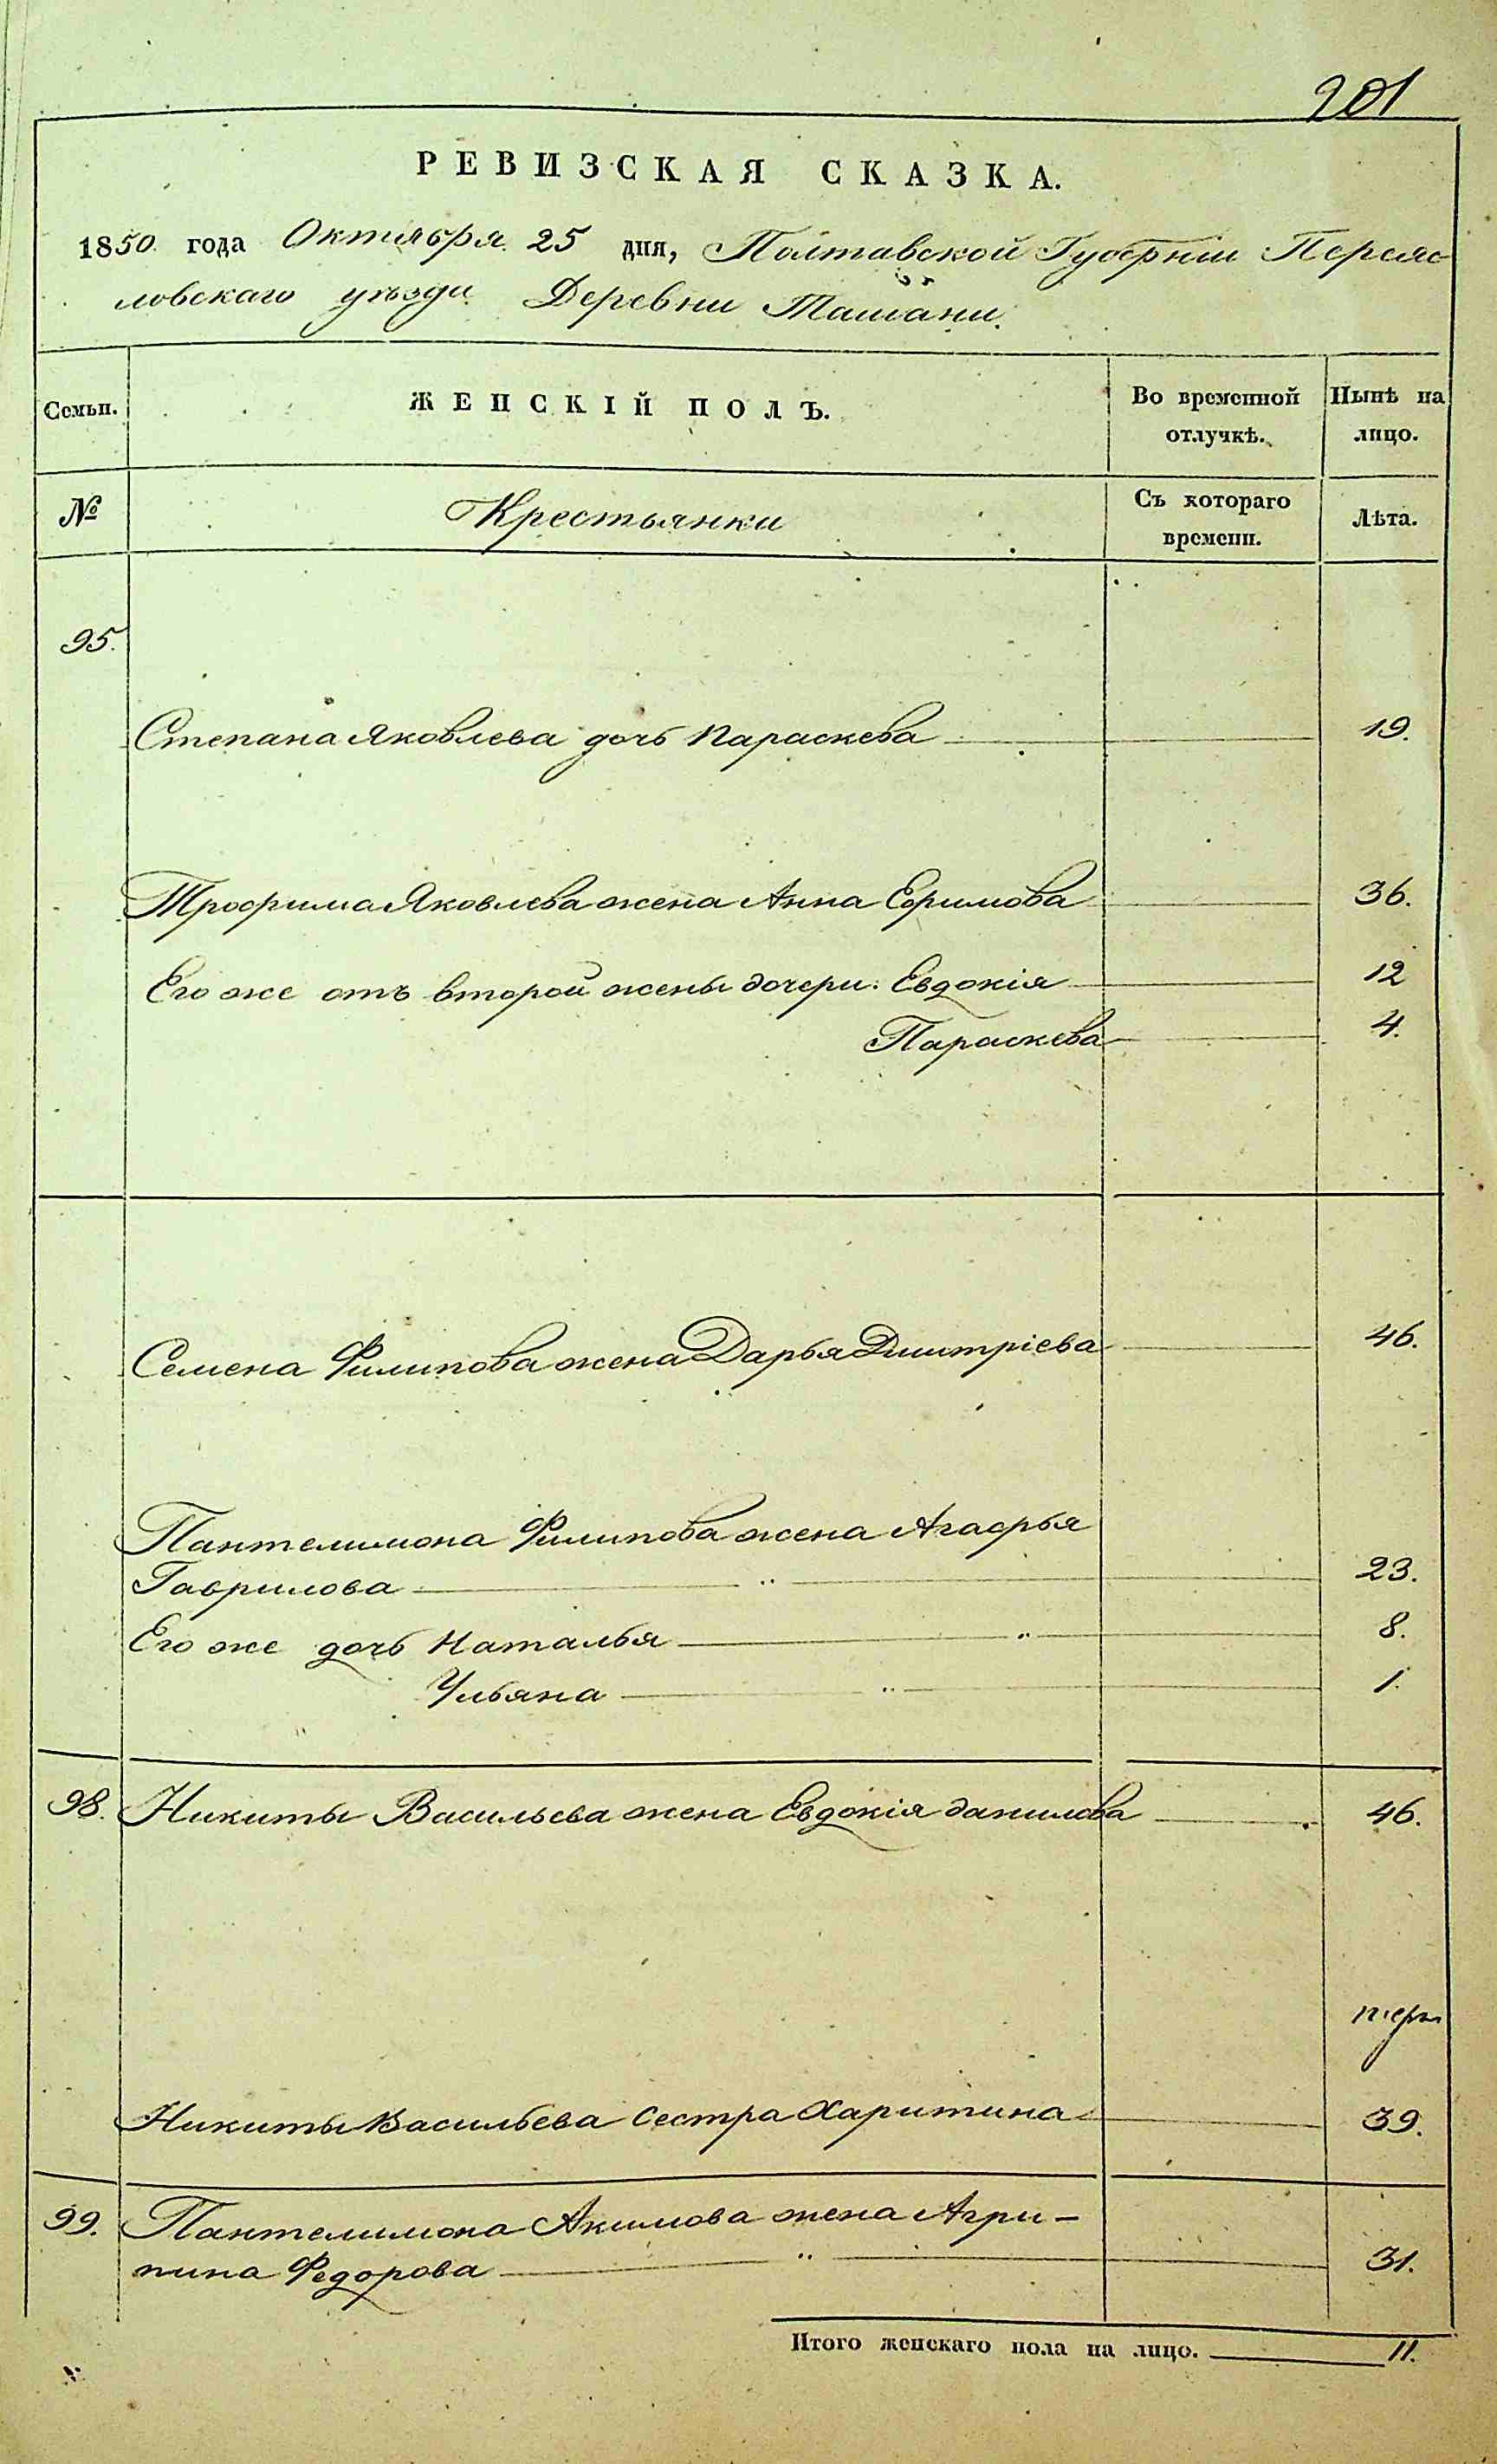 201
РЕВИЗСКАЯ СКАЗКА.
1850 года Октября 25 дня, Полтавской Губерніи Переяс
ловскаго уѣзда Деревни Ташани.
Семьи. ЖЕНСКІЙ ПОЛЪ. Во временной отлучкѣ. Нынѣ на лицо.
№ Крестьянки Съ котораго времени. Лѣта.
95.
Степана Яковлева дочь Параскева 19.
Трофима Яковлева жена Анна Ефимова 36.
Его же отъ второй жены дочери: Евдокія 12
Параскева 4.
Семена Филипова жена Дарья Дмитріева 46.
Пантелимона Филипова жена Агафья
Гаврилова 23.
Его же дочь Наталья 8.
Ульяна 1.
98. Никиты Васильева жена Евдокія Данилова 46.
Никиты Васильева сестра Харитина 39.
99. Пантелимона Акимова жена Агри-
пина Федорова 31.
Итого женскаго пола на лицо. 11.